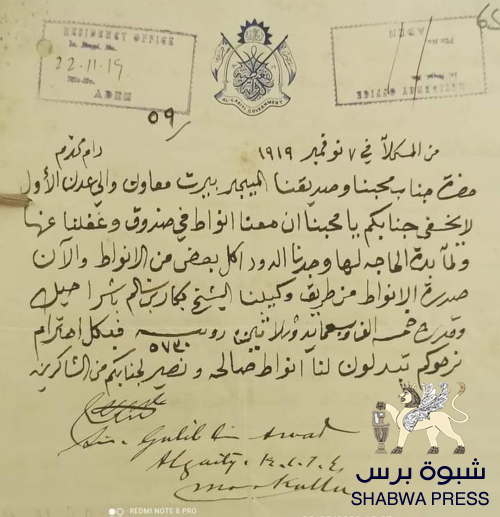 RESIDENCY OFFICE
22-11-19
ADEN
ADEN
RESIDENCY OFFICE
65
AL-QAEITI GOVERNMENT
59/
من المكلا في ٧ نوفمبر ١٩١٩
دام مكرم
حضرة جناب محبنا وصديقنا الميجر بيرت معاون والي عدن الأول
لا يخفى جنابكم يا محبنا ان معنا انواط في صندوق وغفلنا عنها
ولما بدة الحاجه لها وجدنا الدود اكل بعض من الانواط والآن
صدرة الانواط من طريق وكيلنا الشيخ بكار بن سالم باشراحيل
وقدرها خمسه الف وسبعمايه وثلاثين روبيه ٥٧٣٠ فبكل احترام
نرجوكم تبدلون لنا انواط صالحه ونصير لجنابكم من الشاكرين
Sir. Galib bin Awad
Alqaity. K.C.I.E.
Mokalla
شبوة برس
SHABWA PRESS
REDMI NOTE 8 PRO